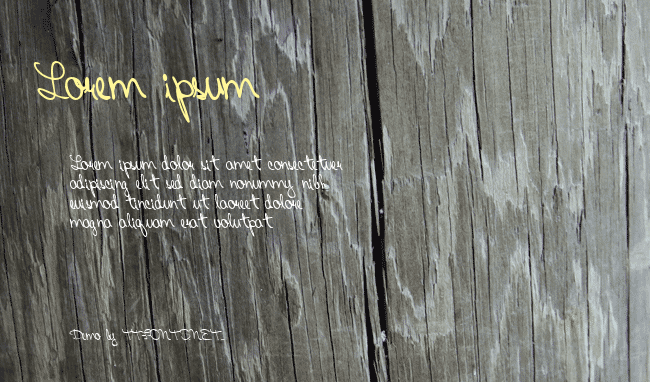 Lorem ipsum
Lorem ipsum dolor sit amet consectetuer
adipiscing elit sed diam nonummy nibh
euismod tincidunt ut laoreet dolore
magna aliquam erat volutpat
Demo by TTFONTS.NET